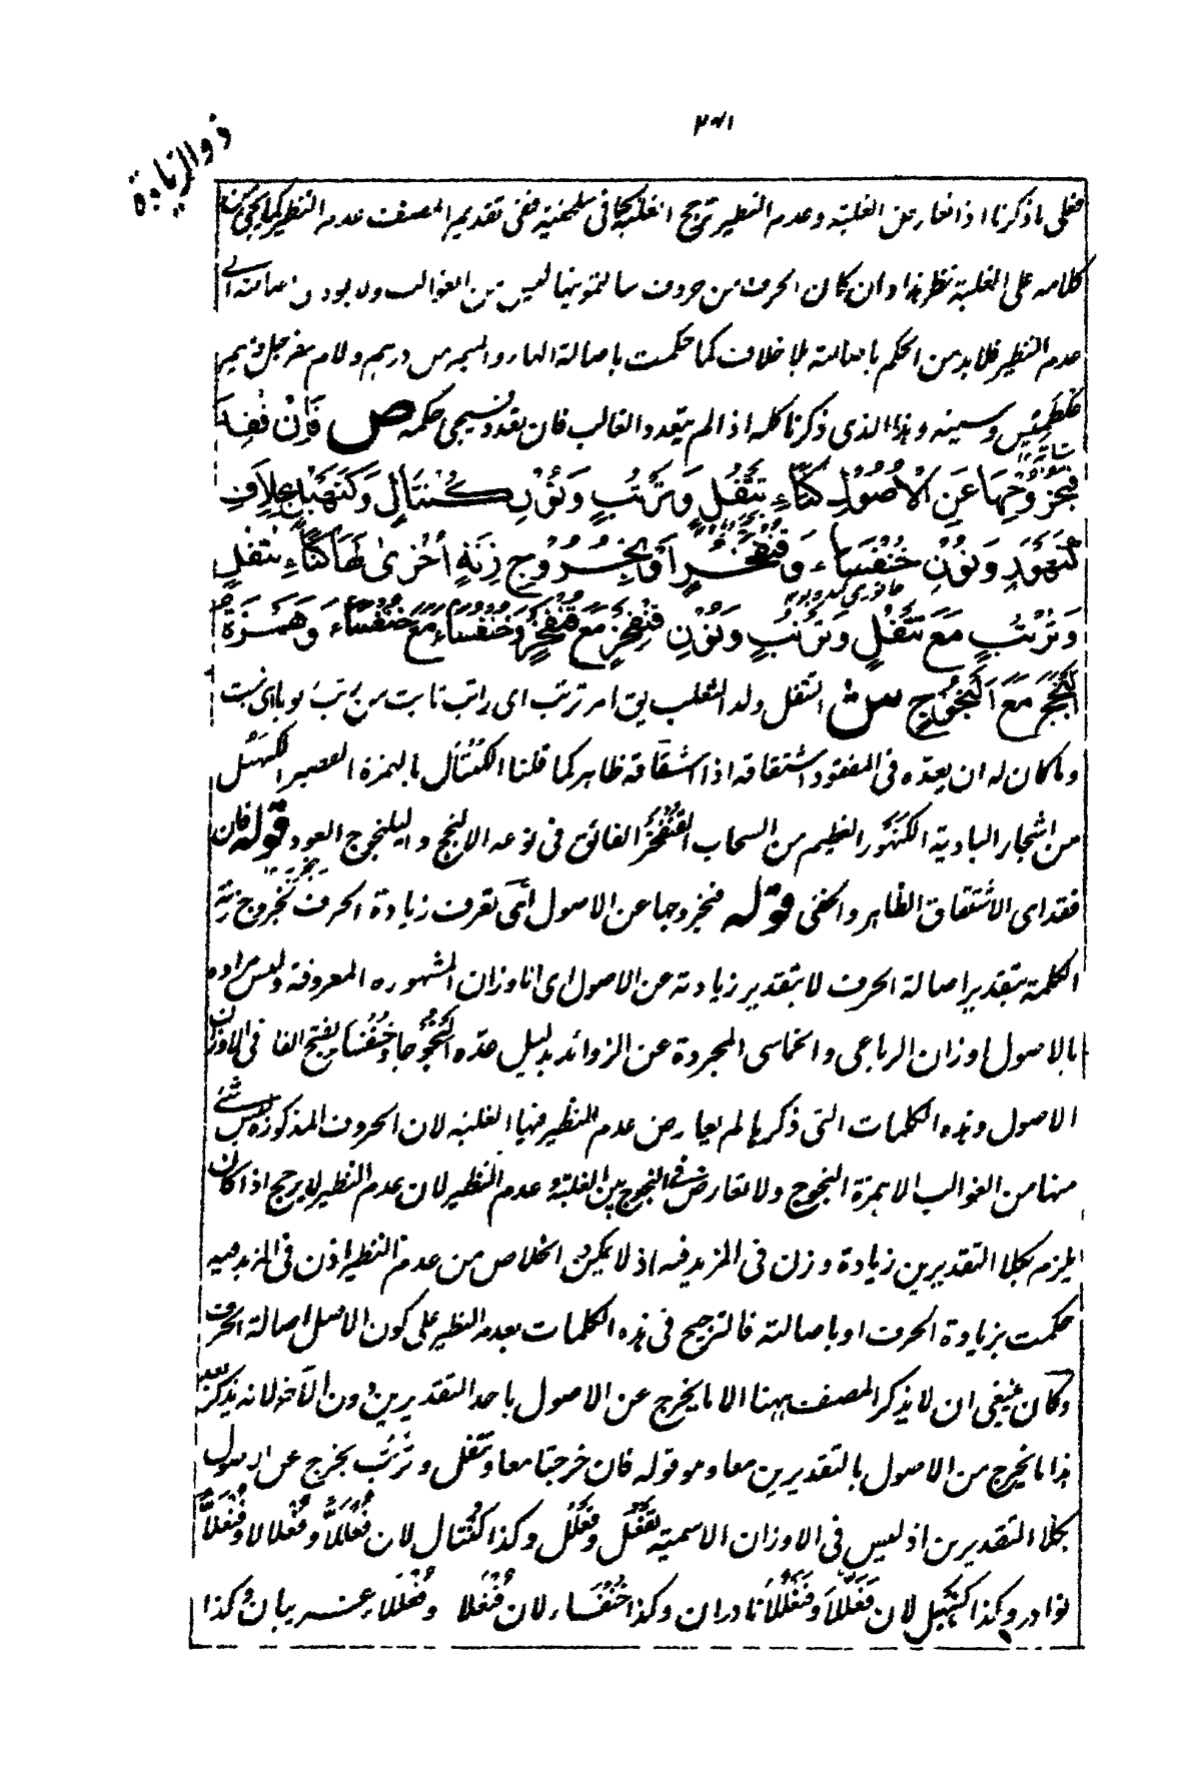 ٢٦١
ذوالزيادة
فعلى ما ذكرنا اذا تعارض الغلبة وعدم النظير ترجح الغلبة كما فى سلحفية ففى تقديم المصنف عدم النظير كما يجئ من
كلامه على الغلبة نظر هذا وان كان الحرف من حروف سالتمونيها ليس من الغوالب ولا يؤدى اصالته الى
عدم النظير فلا بد من الحكم باصالته بلا خلاف كما حكمت باصالة الهاء والميم من درهم ولام سفرجل وميم
وسينه وهذا الذى ذكرنا كله اذا لم يتعدد الغالب فان تعدد فسيجئ حكمه ص فَاِنْ فُقِدَ
فَبِخُرُوْجِهَا عَنِ الْاُصُوْلِ كَتَاءِ تَتْفُلٍ وَتَرْتُبٍ وَنُوْنِ كُنْتَأْلٍ وَكَنَهْبُلٍ بِخِلَافِ
كَنَهْوَرٍ وَنُوْنِ خُنْفَسَاءَ وَقُنْفَخْرٍ اَوْ بِخُرُوْجِ زِنَةٍ اُخْرٰى لَهَا كَتَاءِ تُتْفُلٍ
وَتُرْتُبٍ مَعَ تَتْفُلٍ وَتَرْتُبٍ وَنُوْنِ قِنْفَخْرٍ مَعَ قُنْفَخْرٍ وَخُنْفُسَاءَ مَعَ خُنْفَسَاءَ وَهَمْزَةِ
اَلَنْجَجٍ مَعَ اَلَنْجُوْجٍ ش التتفل ولد الثعلب يق امر ترتب اى راتب ثابت من رتب رتوبا اى ثبت
وما كان له ان يعده فى المفقود اشتقاقه اذ اشتقاقه ظاهر كما قلنا الكنتأل بالهمزة القصير الكنهبل
من اشجار البادية الكنهور العظيم من السحاب القنفخر الفائق فى نوعه الالنجج واليلنجوج العود قوله فان
فقد اى الاشتقاق الظاهر والخفى قوله فبخروجها عن الاصول اى تعرف زيادة الحرف بخروج زنة
الكلمة بتقدير اصالة الحرف لا بتقدير زيادته عن الاصول اى الاوزان المشهوره المعروفة وليس مراده
بالاصول اوزان الرباعى والخماسى المجردة عن الزوائد بدليل عده النجوجا وخنفساء بفتح الفا فى الاوزان
الاصول وهذه الكلمات التى ذكرها لم يعارض عدم النظير فيها الغلبة لان الحروف المذكورة ليس شئ
منها من الغوالب الا همزة النجوج ولا تعارض فى النجوج بين الغلبة و عدم النظير لان عدم النظير لا يرجح اذا كان
يلزم بكلا التقديرين زيادة وزن فى المزيد فيه اذ لا يمكن الخلاص من عدم النظير اذن فى المزيد فيه
حكمت بزيادة الحرف او باصالته فالترجيح فى هذه الكلمات بعدم النظير على كون الاصل اصالة الحرف
وكان ينبغى ان لا يذكر المصنف ههنا الا ما يخرج عن الاصول باحد التقديرين دون الآخر لانه يذكر بعد
هذا ما يخرج من الاصول بالتقديرين معا وهو قوله فان خرجتا معا وتتفل وترتب يخرج عن الاصول
بكلا التقديرين اذ ليس فى الاوزان الاسمية تفعل وفعلل وكذا كنتال لان فعللا وفنعالا وفنعلا
نوادر وكذا كنهبل لان فعللا وفنعللا نادران وكذا خنفساء لان فنعلا وفعللاء غريبان وكذا